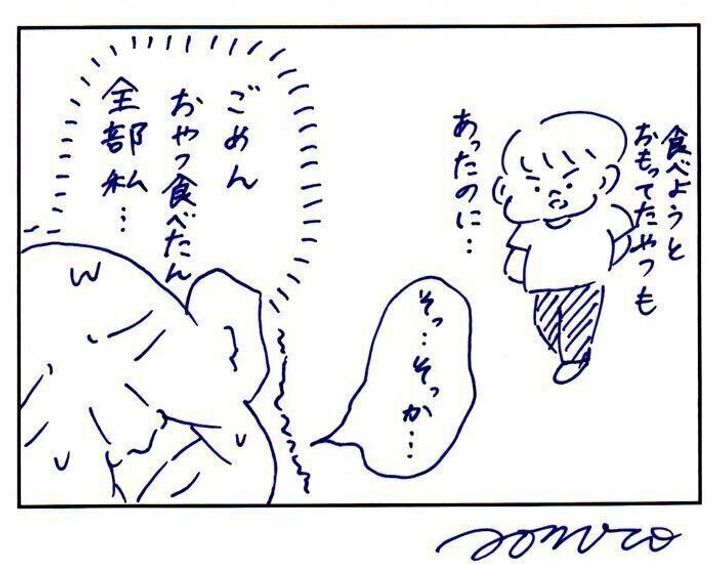 食べようと
おもってたやつも
あったのに…
ごめん
おやつ食べたん
全部私…
そっ…そっか…